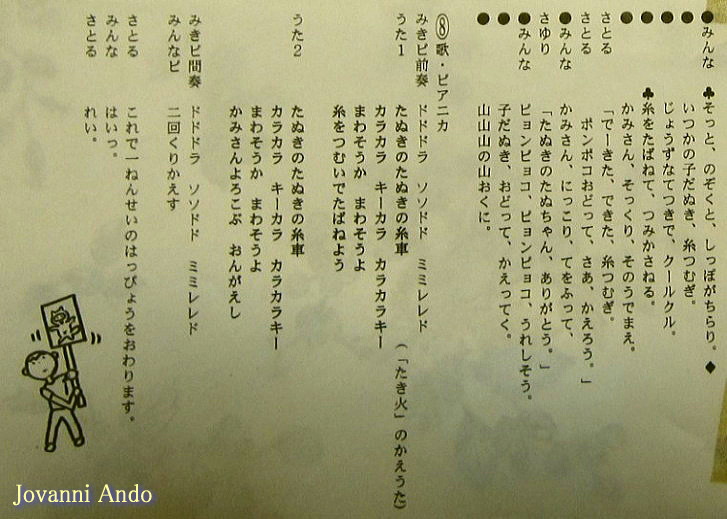 ● みんな ♣そっと、のぞくと、しっぽがちらり。◆
● いつかの子だぬき、糸つむぎ。
● じょうずなてつきで、クールクル。
● ♣糸をたばねて、つみかさねる。
● かみさん、そっくり、そのうでまえ。
さとる 「でーきた、できた、糸つむぎ。
さとる ポンポコおどって、さあ、かえろう。」
● みんな かみさん、にっこり、てをふって、
さゆり 「たぬきのたぬちゃん、ありがとう。」
● みんな ピョンピョコ、ピョンピョコ、うれしそう。
● 子だぬき、おどって、かえってく。
● 山山山の山おくに。
⑧歌・ピアニカ
みきピ前奏 ドドドラ ソソドド ミミレレド
うた1 たぬきのたぬきの糸車 (「たき火」のかえうた)
カラカラ キーカラ カラカラキー
まわそうか まわそうよ
糸をつむいでたばねよう
うた2 たぬきのたぬきの糸車
カラカラ キーカラ カラカラキー
まわそうか まわそうよ
かみさんよろこぶ おんがえし
みきピ間奏 ドドドラ ソソドド ミミレレド
みんなピ 二回くりかえす
さとる これで一ねんせいのはっぴょうをおわります。
みんな はいっ。
さとる れい。
Jovanni Ando